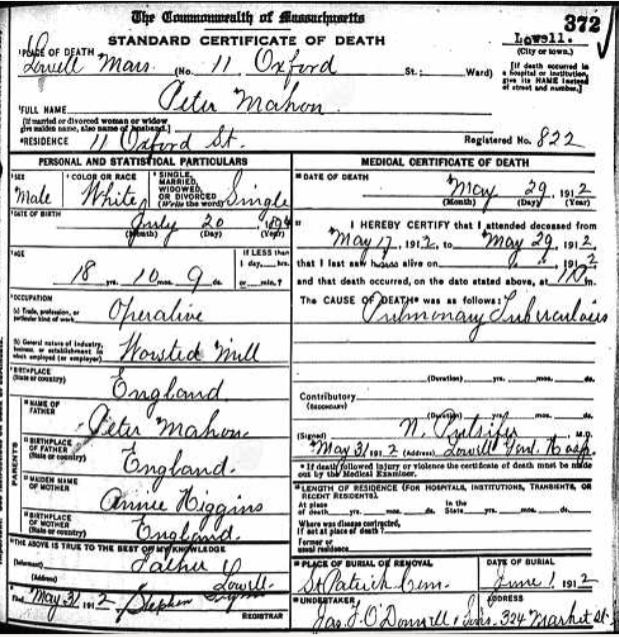 The Commonwealth of Massachusetts
372
STANDARD CERTIFICATE OF DEATH
Lowell.
(City or town.)
¹PLACE OF DEATH
Lowell Mass (No. 11 Oxford St.; Ward)
[If death occurred in a hospital or institution, give its NAME instead of street and number.]
²FULL NAME Peter Mahon
[If married or divorced woman or widow give maiden name, also name of husband.]
RESIDENCE 11 Oxford St.
Registered No. 822
PERSONAL AND STATISTICAL PARTICULARS
SEX Male
COLOR OR RACE White
SINGLE, MARRIED, WIDOWED, OR DIVORCED (Write the word) Single
DATE OF BIRTH July 20, 1894
(Month) (Day) (Year)
AGE 18 yrs. 10 mos. 9 ds.
If LESS than 1 day, hrs. or min.?
OCCUPATION
(a) Trade, profession, or particular kind of work Operative
(b) General nature of industry, business, or establishment in which employed (or employer) Worsted Mill
BIRTHPLACE (State or country) England
PARENTS
NAME OF FATHER Peter Mahon.
BIRTHPLACE OF FATHER (State or country) England.
MAIDEN NAME OF MOTHER Annie Higgins
BIRTHPLACE OF MOTHER (State or country) England.
THE ABOVE IS TRUE TO THE BEST OF MY KNOWLEDGE
(Informant) Father
(Address) Lowell
Filed May 31 1912 Stephen Flynn
REGISTRAR
MEDICAL CERTIFICATE OF DEATH
DATE OF DEATH May 29, 1912
(Month) (Day) (Year)
I HEREBY CERTIFY that I attended deceased from
May 17, 1912, to May 29, 1912,
that I last saw him alive on " ", 1912
and that death occurred, on the date stated above, at m.
The CAUSE OF DEATH* was as follows:
Pulmonary Tuberculosis
(Duration) yrs. mos. ds.
Contributory
(SECONDARY)
(Duration) yrs. mos. ds.
(Signed) N. Pulsifer, M.D.
May 31 1912 (Address) Lowell Genl. Hosp.
* If death followed injury or violence the certificate of death must be made out by the Medical Examiner.
LENGTH OF RESIDENCE (FOR HOSPITALS, INSTITUTIONS, TRANSIENTS, OR RECENT RESIDENTS).
At place of death yrs. mos. ds. In the State yrs. mos. ds.
Where was disease contracted, If not at place of death?
Former or usual residence
PLACE OF BURIAL OR REMOVAL
St Patrick Cem.
DATE OF BURIAL
June 1, 1912
UNDERTAKER
Jas. F. O'Donnell & Sons.
ADDRESS
324 Market St.